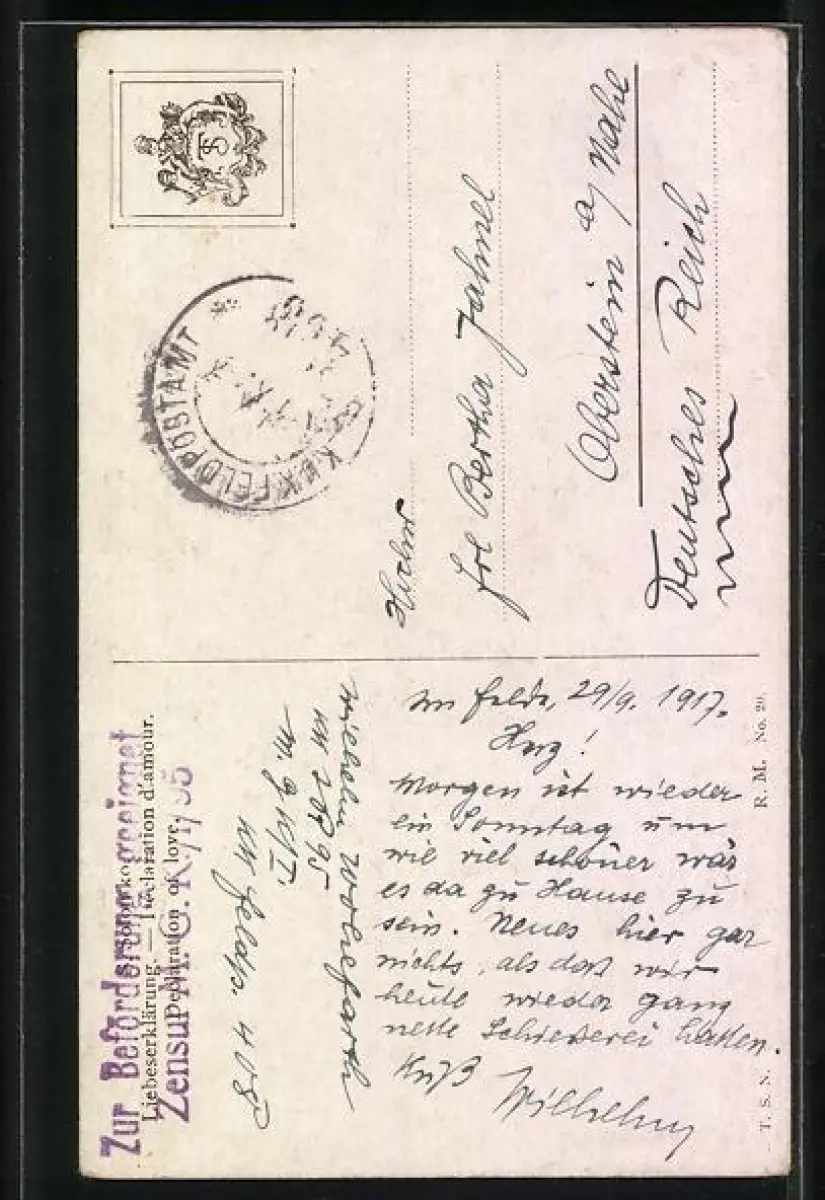 Zur Beförderung geeignet
Liebeserklärung. — Déclaration d'amour.
Declaration of love.
Zensur
Wilhelm
M. G. K. I.
KK Feldp.
Im Felde, 29/9. 1917.
Herz!
Morgen ist wieder
ein Sonntag um
wie viel schöner wär
es da zu Hause zu
sein. Neues hier gar
nichts, als daß wir
heute wieder ganz
nette Schießerei hatten.
Kuß
Wilhelm
TS
K.u.K. FELDPOSTAMT
Frl Bertha Jahnel
Oberstein a/Nahe
Deutsches Reich
T. S. N.
R. M. No. 20.